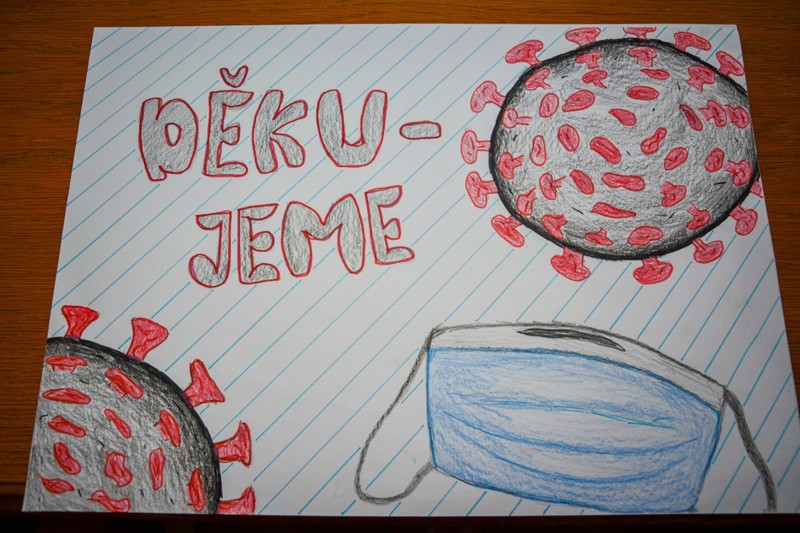 DĚKU-
JEME